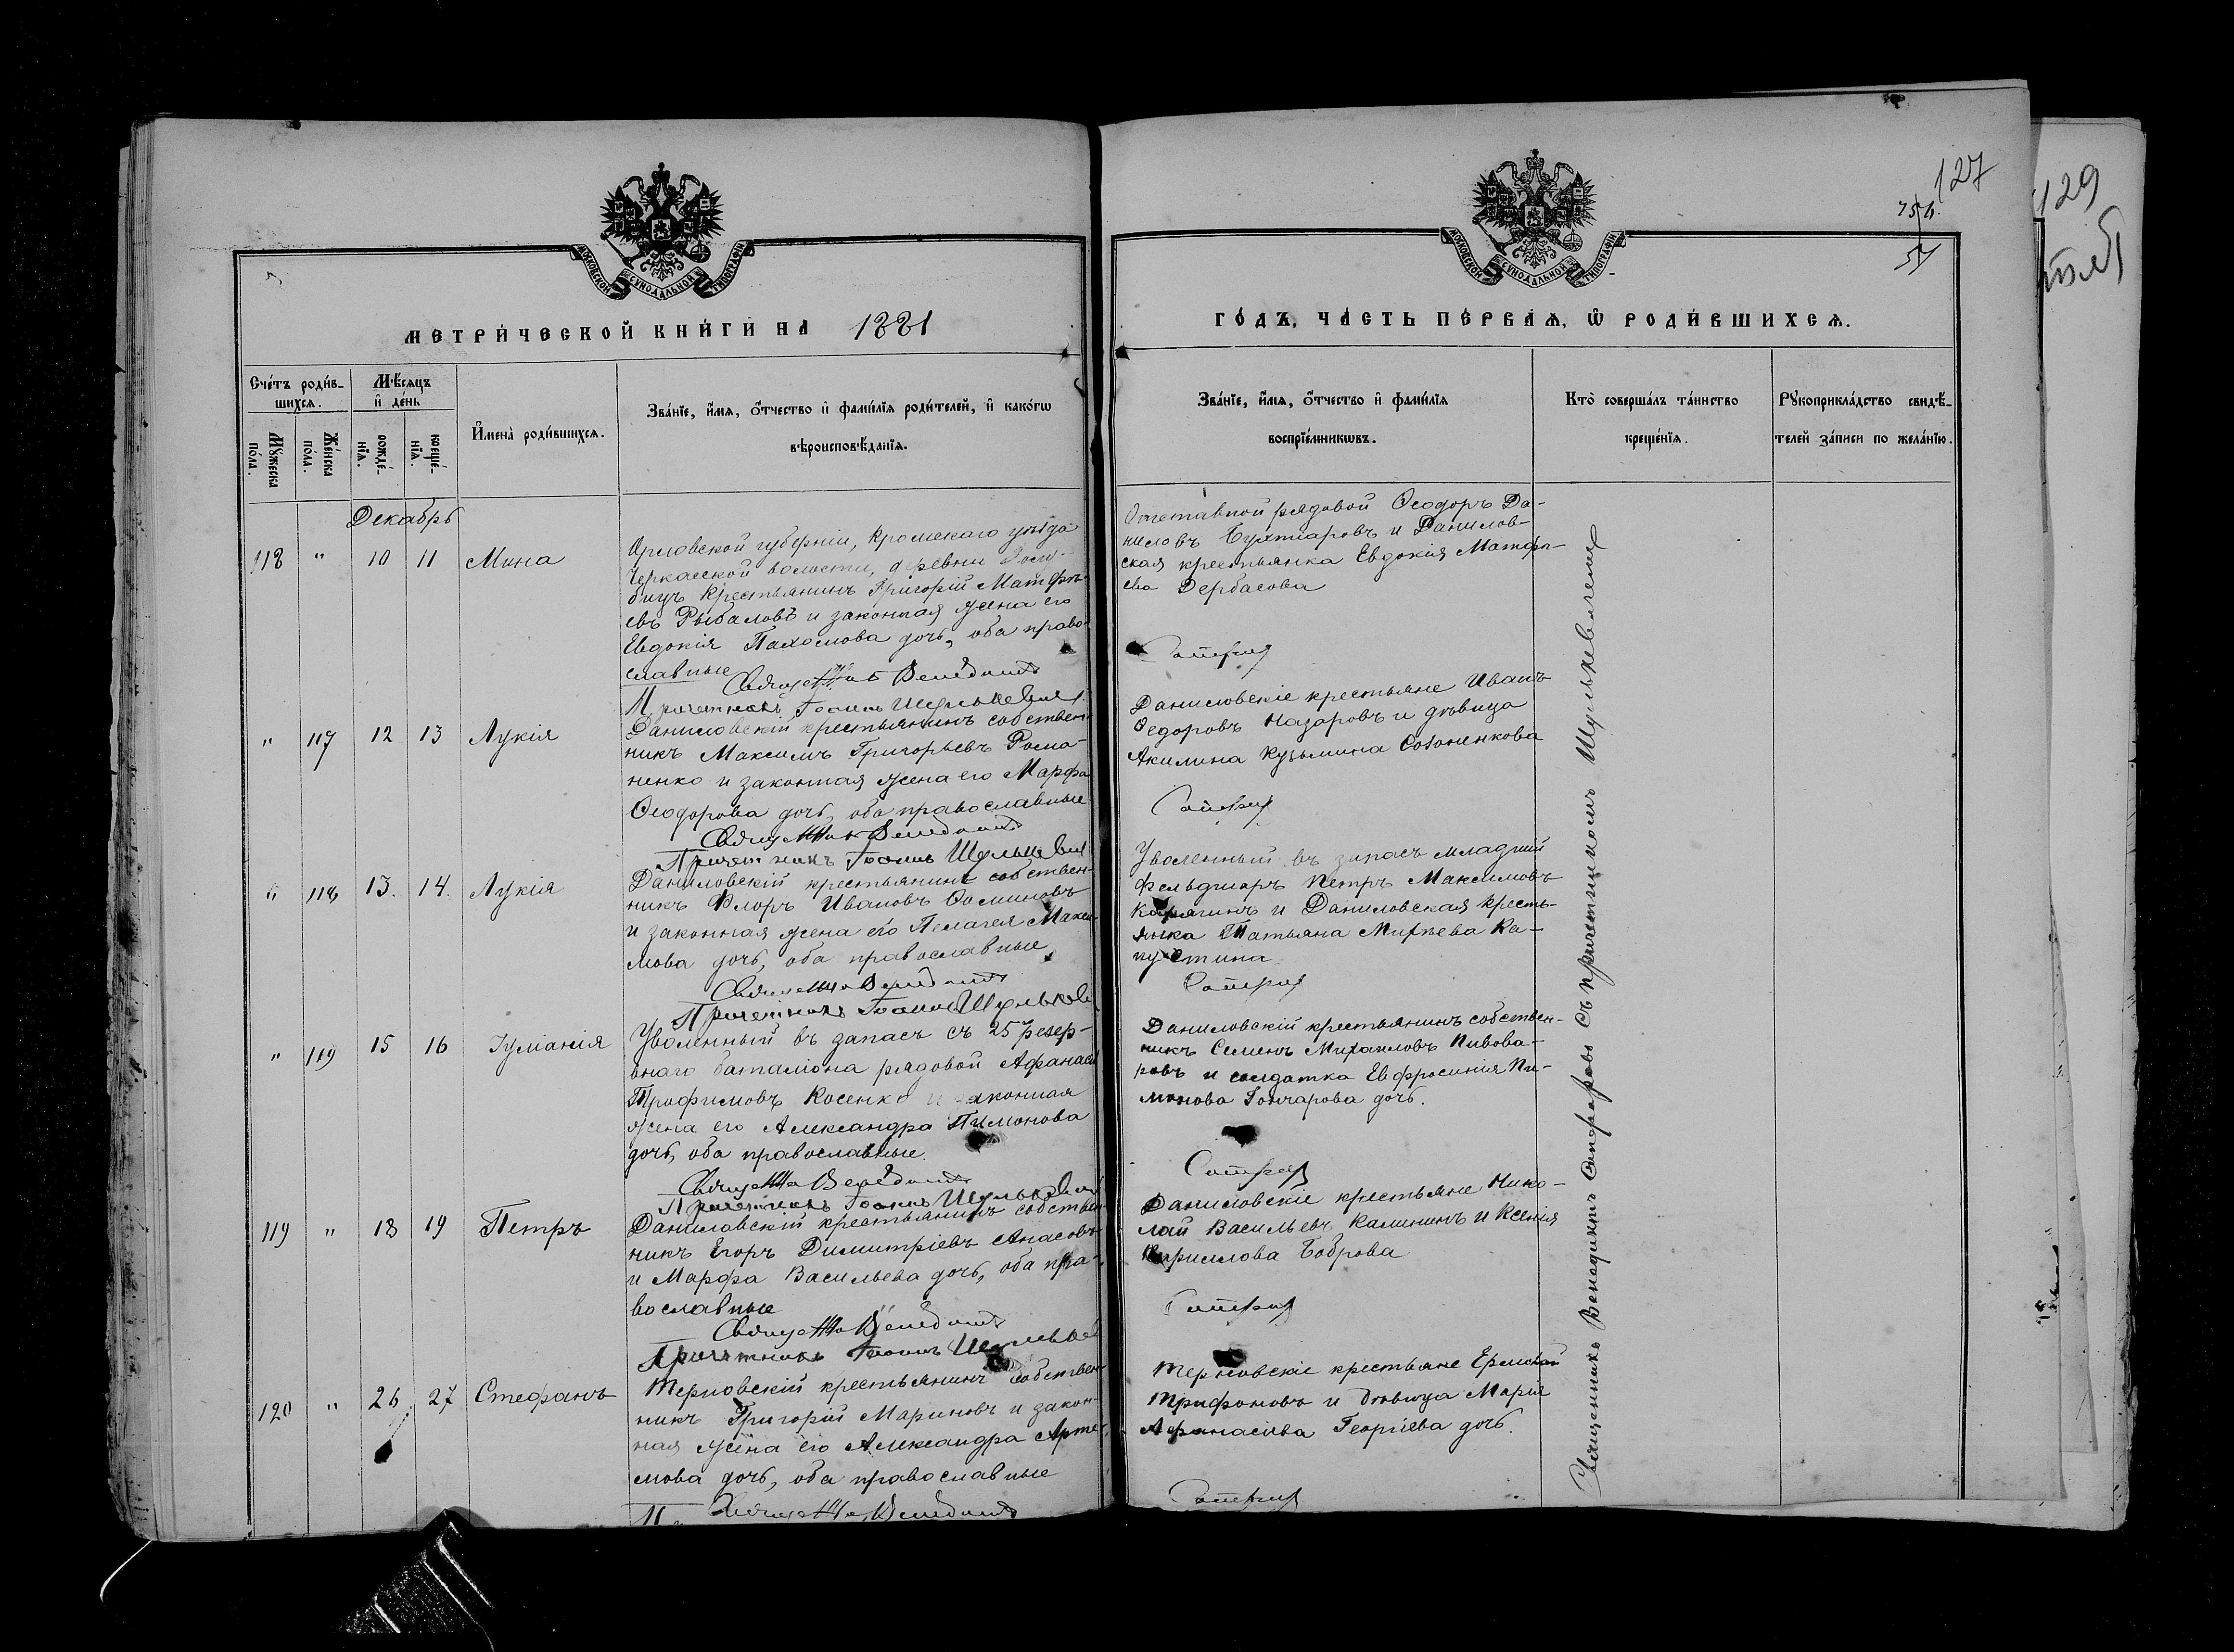 127
129
МОСКОВСКОЙ СѴНОДАЛЬНОЙ ТИПОГРАФІИ
МОСКОВСКОЙ СѴНОДАЛЬНОЙ ТИПОГРАФІИ
МЕТРИ́ЧЕСКОЙ КНИ́ГИ НА 1881
ГО́ДЪ, ЧА́СТЬ ПЕ́РВАѦ, Ѿ РОДИ́ВШИХСѦ.
Сче́тъ роди́в-
шихсѧ.
Мꙋ́жеска по́ла.
Же́нска по́ла.
Мѣ́сѧцъ и҆ де́нь
рожде́-нїѧ.
креще́-нїѧ.
И҆мена̀ роди́вшихсѧ.
Зва́нїе, и҆́мѧ, ѻ҆́тчество и҆ фами́лїѧ роди́телей, и҆ како́гѡ
вѣроисповѣ́данїѧ.
Зва́нїе, и҆́мѧ, ѻ҆́тчество и҆ фами́лїѧ
воспрїе́мникѡвъ.
Кто̀ соверша́лъ та́инство
креще́нїѧ.
Рꙋкоприкла́дство свидѣ́-
телей за́писи по жела́нїю.
Декабрь
118 " 10 11 Мина
Орловской губерніи, Кромскаго уѣзда
Черкасской волости, деревни
крестьянинъ Григорій Матфѣ-
евъ Рыбаловъ и законная жена его
Евдокія Пахомова дочь, оба право-
славные
Священникъ Венедиктъ
Причетникъ Іоаннъ Шулькевич
Отставной рядовой Ѳеодоръ Да-
ниловъ Бухтіаровъ и Данилов-
ская крестьянка Евдокія Матфѣ-
ева Дербасова
" 117 12 13 Лукія
Даниловскій крестьянинъ собствен-
никъ Максимъ Григорьевъ Рома-
ненко и законная жена его Марфа
Ѳеодорова дочь, оба православные
Священникъ Венедиктъ
Причетникъ Іоаннъ Шулькевич
Даниловскіе крестьяне Иванъ
Ѳедоровъ Назаровъ и дѣвица
Акилина Кузьмина
" 118 13. 14. Лукія
Даниловскій крестьянинъ собствен-
никъ Флоръ Ивановъ Ѳоминовъ
и законная жена его Пелагея Макси-
мова дочь, оба православные
Священникъ Венедиктъ
Причетникъ Іоаннъ Шулькевич
Уволенный въ запасъ младшій
фельдшеръ Петръ Максимовъ
Карягинъ и Даниловская кресть-
янка Татьяна Михѣева Ка-
пустина
" 119 15 16 Іуліанія
Уволенный въ запасъ съ 25 резер-
внаго баталіона рядовой Афанасій
Трофимовъ Косенко и законная
жена его Александра Пимонова
дочь, оба православные.
Священникъ Венедиктъ
Причетникъ Іоаннъ Шулькевич
Даниловскій крестьянинъ собствен-
никъ Семенъ Михаиловъ Пивова-
ровъ и солдатка Евфросинія Пи-
монова Гончарова дочь.
119 " 18 19 Петръ
Даниловскій крестьянинъ собствен-
никъ Егоръ Димитріевъ Анасовъ
и Марфа Васильева дочь, оба пра-
вославные
Священникъ Венедиктъ
Причетникъ Іоаннъ Шулькевич
Даниловскіе крестьяне Нико-
лай Васильевъ Калининъ и Ксенія
Кириллова Боброва
120 " 26 27 Стефанъ
Терновскій крестьянинъ собствен-
никъ Григорій Мариновъ и закон-
ная жена его Александра Арте-
мова дочь, оба православные
Священникъ Венедиктъ
Терновскіе крестьяне Ермолай
Трифоновъ и дѣвица Марія
Афанасіева Георгіева дочь.
Священникъ Венедиктъ съ причетникомъ Шулькевичемъ